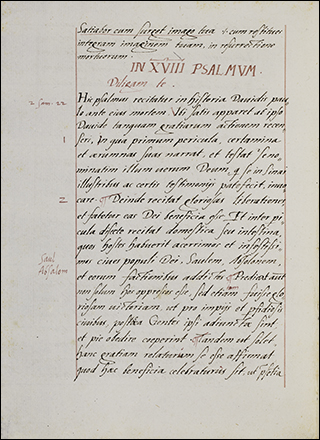 Satiabor cum surget imago tua & cum restitues
integram imaginem tuam, in resurrectione
mortuorum.
IN XVIII PSALMVM.
Diligam te.
2 Sam. 22
Hic psalmus recitatur in historia Dauidis pau
lo ante eius mortem. Vti satis apparet ab ipso
Dauide tanquam gratiarum actionem recen
seri, In qua primum pericula, certamina
1
et ærumnas suas narrat, et testat se no
minatim illum uerum Deum, qui se in Sinai
illustribus ac certis testimonijs patefecit, inuo
2
care. Deinde recitat gloriosas liberationes,
et fatetur eas Dei beneficia esse. Et inter pi
cula diserte recitat domestica seu intestina,
quod hostes habuerit acerrimos et infestissi
Saul
Absalom
mos ciues populi Dei. Saulem, Absolonem,
et eorum factionibus addictos. Prædicat aut
non solum hos oppressos esse, sed etiam fuisse glo
riosam uictoriam, ut pro impijs et perfidis
ciuibus, postea Gentes ipsi adiuncta sint
et pie obedire coeperint. Tandem ut solet
hanc gratiam relaturum se esse affirmat
quod hæc beneficia celebraturus sit, ut ostēta